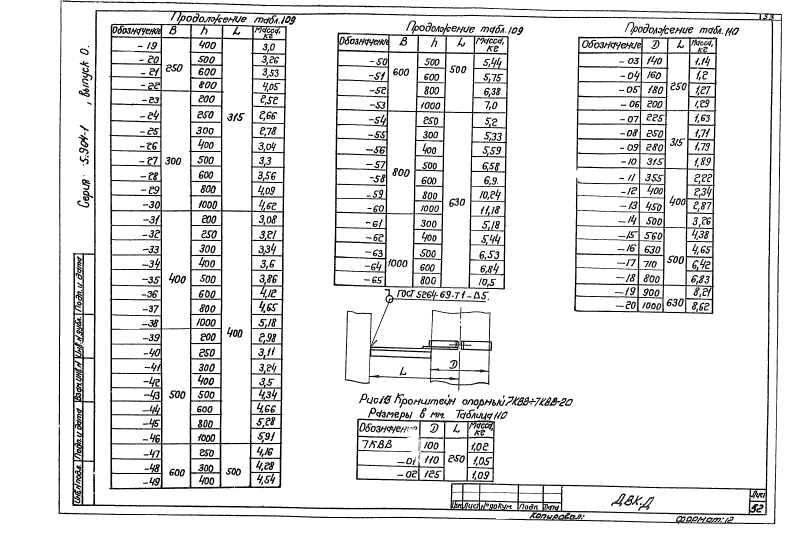 133
Серия 5.904-1, Выпуск 0.
Продолжение табл.109
Обозначение B h L Масса, кг
-19 250 400 315 3,0
-20 500 3,26
-21 600 3,53
-22 800 4,05
-23 300 200 2,52
-24 250 2,66
-25 300 2,78
-26 400 3,04
-27 500 3,3
-28 600 3,56
-29 800 4,09
-30 1000 4,62
-31 400 200 400 3,08
-32 250 3,21
-33 300 3,34
-34 400 3,6
-35 500 3,86
-36 600 4,12
-37 800 4,65
-38 1000 5,18
-39 500 200 2,98
-40 250 3,11
-41 300 3,24
-42 400 3,5
-43 500 4,34
-44 600 4,66
-45 800 5,28
-46 1000 5,91
-47 600 250 500 4,16
-48 300 4,28
-49 400 4,54
Продолжение табл.109
Обозначение B h L Масса, кг
-50 600 500 500 5,44
-51 600 5,75
-52 800 6,38
-53 1000 7,0
-54 800 250 630 5,2
-55 300 5,33
-56 400 5,59
-57 500 6,58
-58 600 6,9
-59 800 10,24
-60 1000 11,18
-61 1000 300 5,18
-62 400 5,44
-63 500 6,53
-64 600 6,84
-65 800 10,5
ГОСТ 5264-69-Т1-⊿5.
D
L
Рис.18 Кронштейн опорный 7КВВ÷7КВВ-20
Размеры в мм. Таблица 110
Обозначение D L Масса, кг
7КВВ 100 250 1,02
-01 110 1,05
-02 125 1,09
Продолжение табл.110
Обозначение D L Масса, кг
-03 140 250 1,14
-04 160 1,2
-05 180 1,27
-06 200 1,29
-07 225 315 1,63
-08 250 1,71
-09 280 1,79
-10 315 1,89
-11 355 400 2,22
-12 400 2,34
-13 450 2,87
-14 500 3,26
-15 560 500 4,38
-16 630 4,65
-17 710 6,42
-18 800 6,83
-19 900 630 8,21
-20 1000 8,62
Инв.№подл. Подп. и дата Взам.инв.№ Инв.№дубл. Подп. и дата
Изм. Лист №докум. Подп. Дата
ДВК.Д
Лист
52
Копировал:
Формат:12